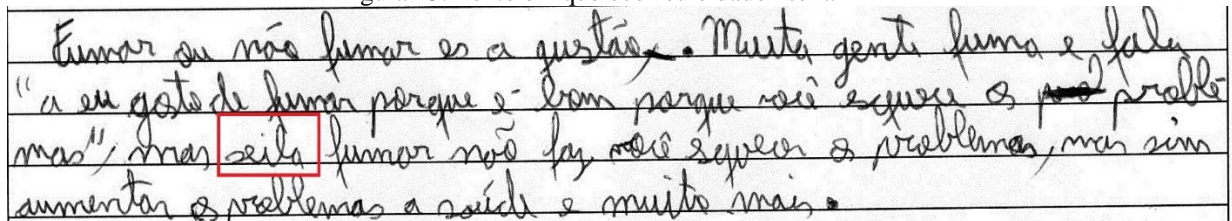 Fumar ou não fumar es a questão. Muita gente fuma e fala
"a eu gosto de fumar porque é bom porque você esquece os problê
mas", mas seila fumar não faz você esquecer os problemas, mas sim
aumentar os problemas a saúde e muito mais.